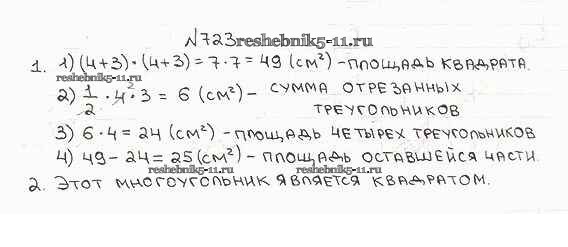 №723 reshebnik5-11.ru
1. 1) (4+3)·(4+3) = 7·7 = 49 (см²) - ПЛОЩАДЬ КВАДРАТА.
reshebnik5-11.ru
2) 1/2 · 4² · 3 = 6 (см²) - СУММА ОТРЕЗАННЫХ
ТРЕУГОЛЬНИКОВ
3) 6·4 = 24 (см²) - ПЛОЩАДЬ ЧЕТЫРЕХ ТРЕУГОЛЬНИКОВ
4) 49 - 24 = 25 (см²) - ПЛОЩАДЬ ОСТАВШЕЙСЯ ЧАСТИ.
reshebnik5-11.ru reshebnik5-11.ru
2. ЭТОТ МНОГОУГОЛЬНИК ЯВЛЯЕТСЯ КВАДРАТОМ.